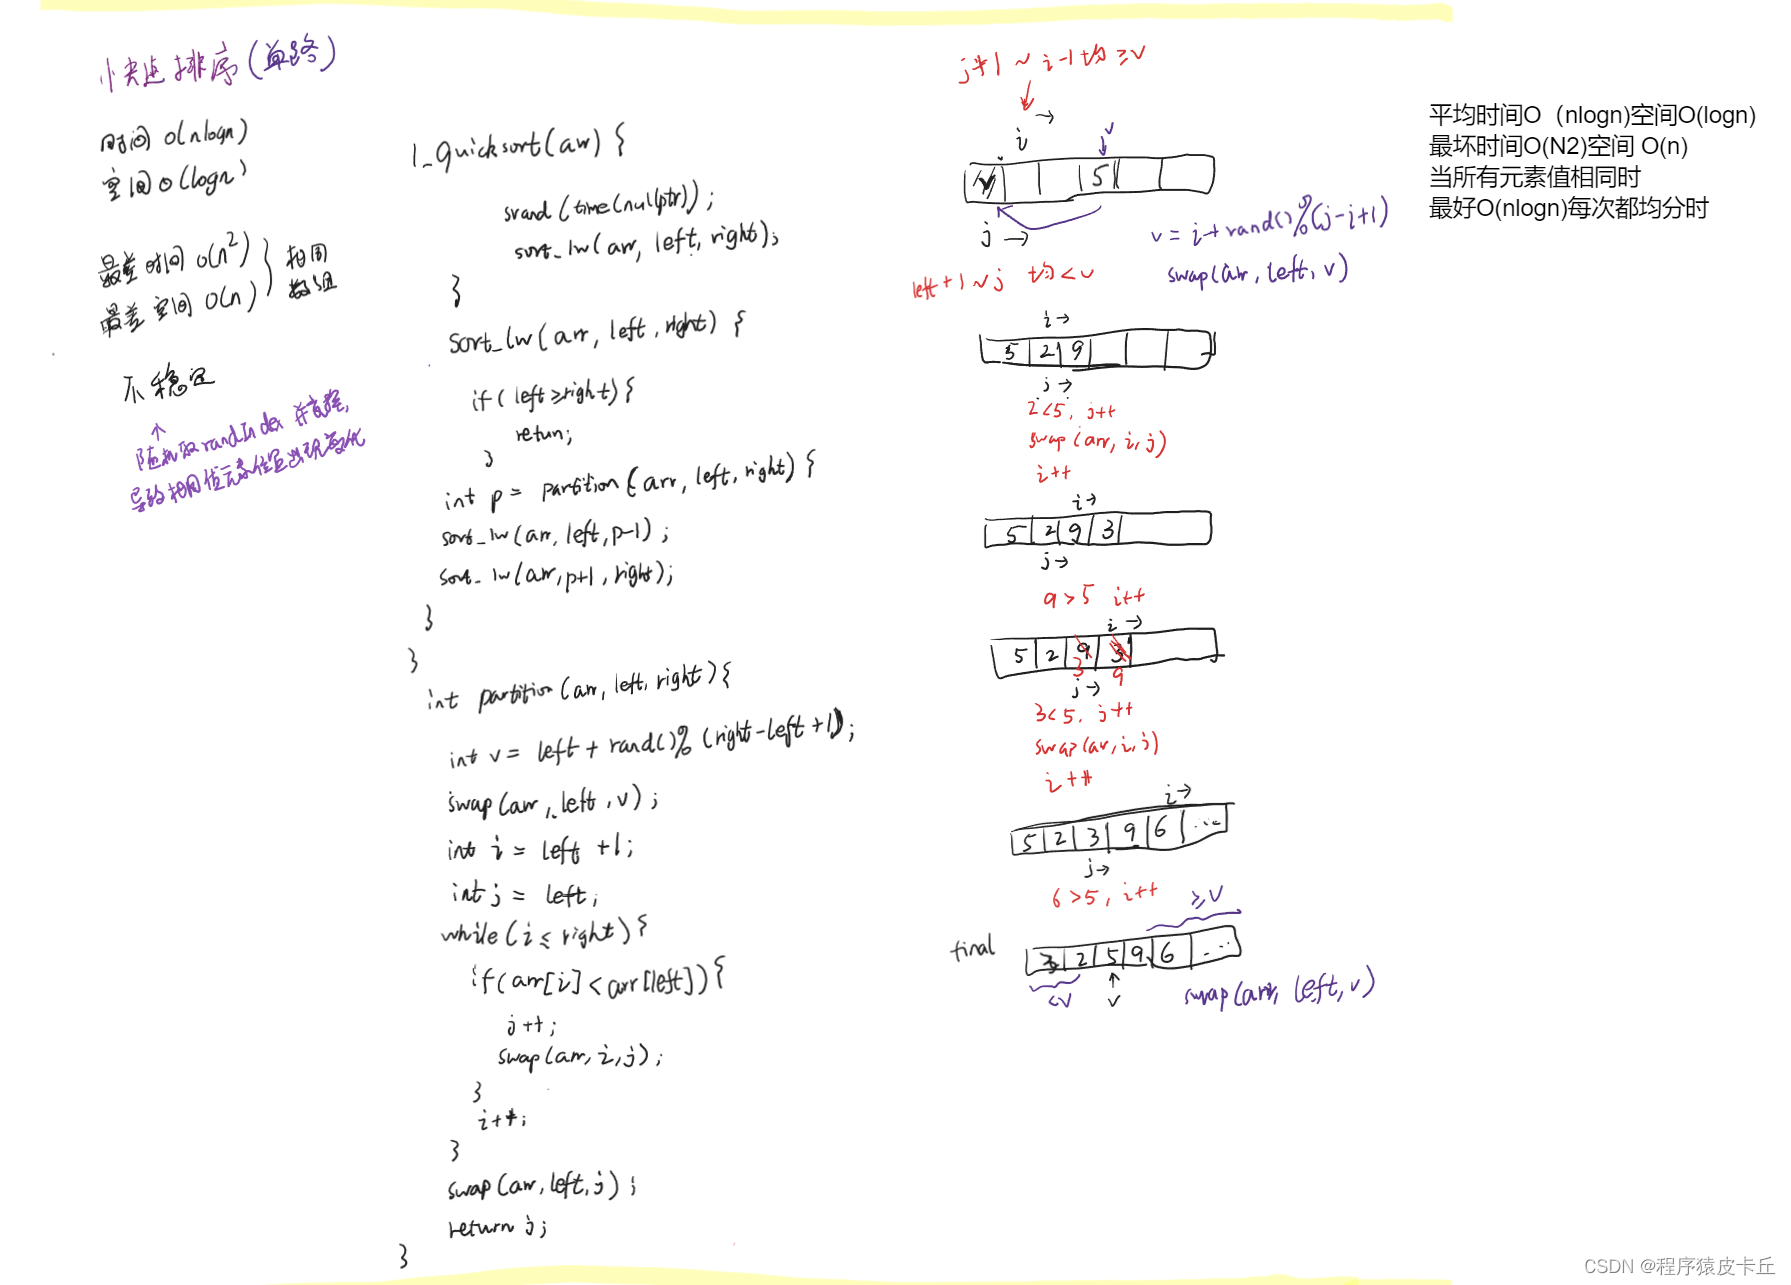 快速排序(单路)
时间 O(nlogn)
空间 O(logn)
最差时间 O(n²)
最差空间 O(n)
相同
数组
不稳定
↑
随机取randIndex 并交换,
导致相同值元素位置出现变化
1_quicksort(arr) {
srand(time(nullptr));
sort_lw(arr, left, right);
}
sort_lw(arr, left, right) {
if( left≥right){
retun;
}
int p = partition(arr, left, right) {
sort_lw(arr, left, p-1);
sort_lw(arr, p+1, right);
}
}
int partition(arr, left, right){
int v = left + rand()%(right-left+1);
swap(arr, left, v);
int i = left +1;
int j = left;
while(i ≤ right){
if(arr[i] < arr[left]){
j++;
swap(arr, i, j);
}
i++;
}
swap(arr, left, j);
return j;
}
j+1 ~ i-1 均 ≥v
i →
v
v 5
j →
v = i+rand()%(j-i+1)
swap(arr, left, v)
left+1 ~ j 均<v
i →
5 2 9
j →
2<5, j++
swap(arr, i, j)
i++
i →
5 2 9 3
j →
9>5 i++
i →
5 2 9 3
3 9
j →
3<5, j++
swap(arr, i, j)
i++
i →
5 2 3 9 6 ...
j →
6>5, i++
≥v
final
3 2 5 9 6 ...
<v
↑
v
swap(arr, left, v)
平均时间O（nlogn)空间O(logn)
最坏时间O(N2)空间 O(n)
当所有元素值相同时
最好O(nlogn)每次都均分时
CSDN @程序猿皮卡丘